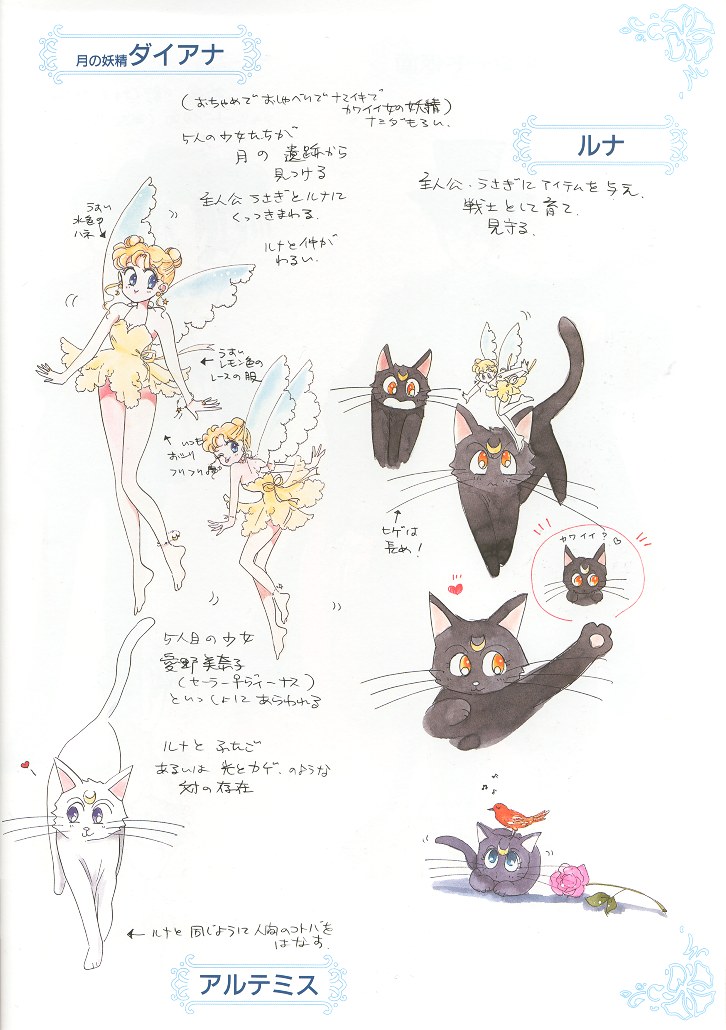 月の妖精ダイアナ
(おちゃめで おしゃべりで ナマイキで
カワイイ女の妖精)
ナミダもろい.
5人の少女たちが
月の 遺跡から
見つける
主人公 うさぎとルナに
くっつきまわる.
ルナと仲が
わるい.
うすい
水色の
ハネ
うすい
レモン色の
レースの服
いつも
おこり
ルナ
主人公・うさぎに アイテムを与え.
戦士として育て.
見守る.
ヒゲは
長め!
カワイイ?♡
5人目の少女
愛野美奈子
(セーラーヴィーナス)
といっしょに あらわれる
ルナと ふたご
あるいは 光とカゲ.のような
対の存在
← ルナと 同じように 人間のコトバを
はなす.
アルテミス